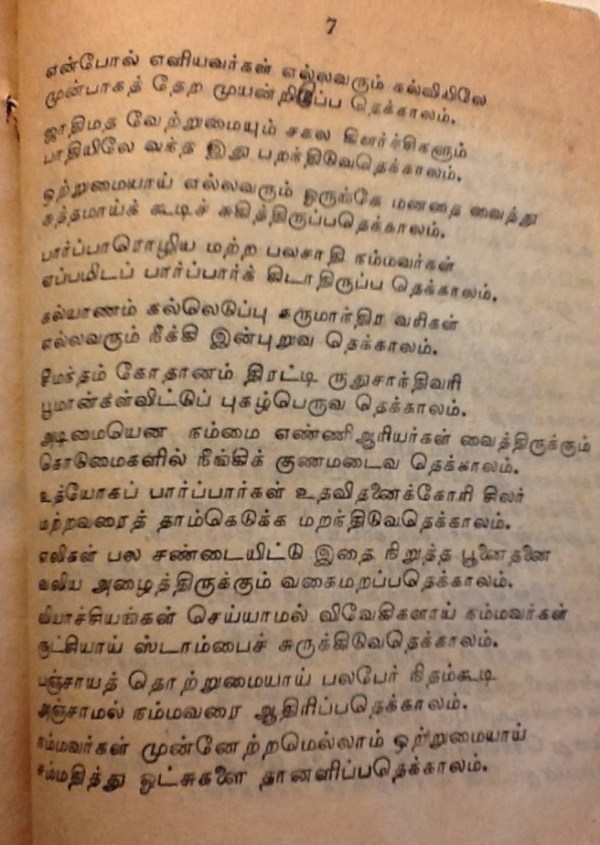 7
என்போல் எளியவர்கள் எல்லவரும் கல்வியிலே
முன்பாகத் தேற முயன்றிருப்ப தெக்காலம்.
ஜாதிமத வேற்றுமையும் சகல கிளர்ச்சிகளும்
பாதியிலே வந்த இது பறந்திடுவதெக்காலம்.
ஒற்றுமையாய் எல்லவரும் ஓருங்கே மனதை வைத்து
சுத்தமாய்க் கூடிச் சுகித்திருப்பதெக்காலம்.
பார்ப்பாரொழிய மற்ற பலசாதி நம்மவர்கள்
எப்பமிடப் பார்ப்பார்க் கிடாதிருப்ப தெக்காலம்.
கல்யாணம் கல்லெடுப்பு கருமாந்திர வசிகள்
எல்லவரும் நீக்கி இன்புறுவ தெக்காலம்.
சீமந்தம் கோதானம் திரட்டி ருதுசாந்திவரி
பூமான்கள்விட்டுப் புகழ்பெருவ தெக்காலம்.
அடிமையென நம்மை எண்ணிஆரியர்கள் வைத்திருக்கும்
கொடுமைகளில் நீங்கிக் குணமடைவ தெக்காலம்.
உத்யோகப் பார்ப்பார்கள் உதவிதனைக்கோரி சிலர்
மற்றவரைத் தாம்கெடுக்க மறந்திடுவதெக்காலம்.
எலிகள் பல சண்டையிட்டு இதை நிறுத்த பூனைதனை
வலிய அழைத்திருக்கும் வகைமறப்பதெக்காலம்.
வியாச்சியங்கள் செய்யாமல் விவேகிகளாய் நம்மவர்கள்
ஸ்டாம்பைச் சுருக்கிடுவதெக்காலம்.
பஞ்சாயத் தொற்றுமையாய் பலபேர் நிதம்கூடி
அஞ்சாமல் நம்மவரை ஆதிரிப்பதெக்காலம்.
நம்மவர்கள் முன்னேற்றமெல்லாம் ஒற்றுமையாய்
சம்மதித்து ஓட்சுகளை தானளிப்பதெக்காலம்.